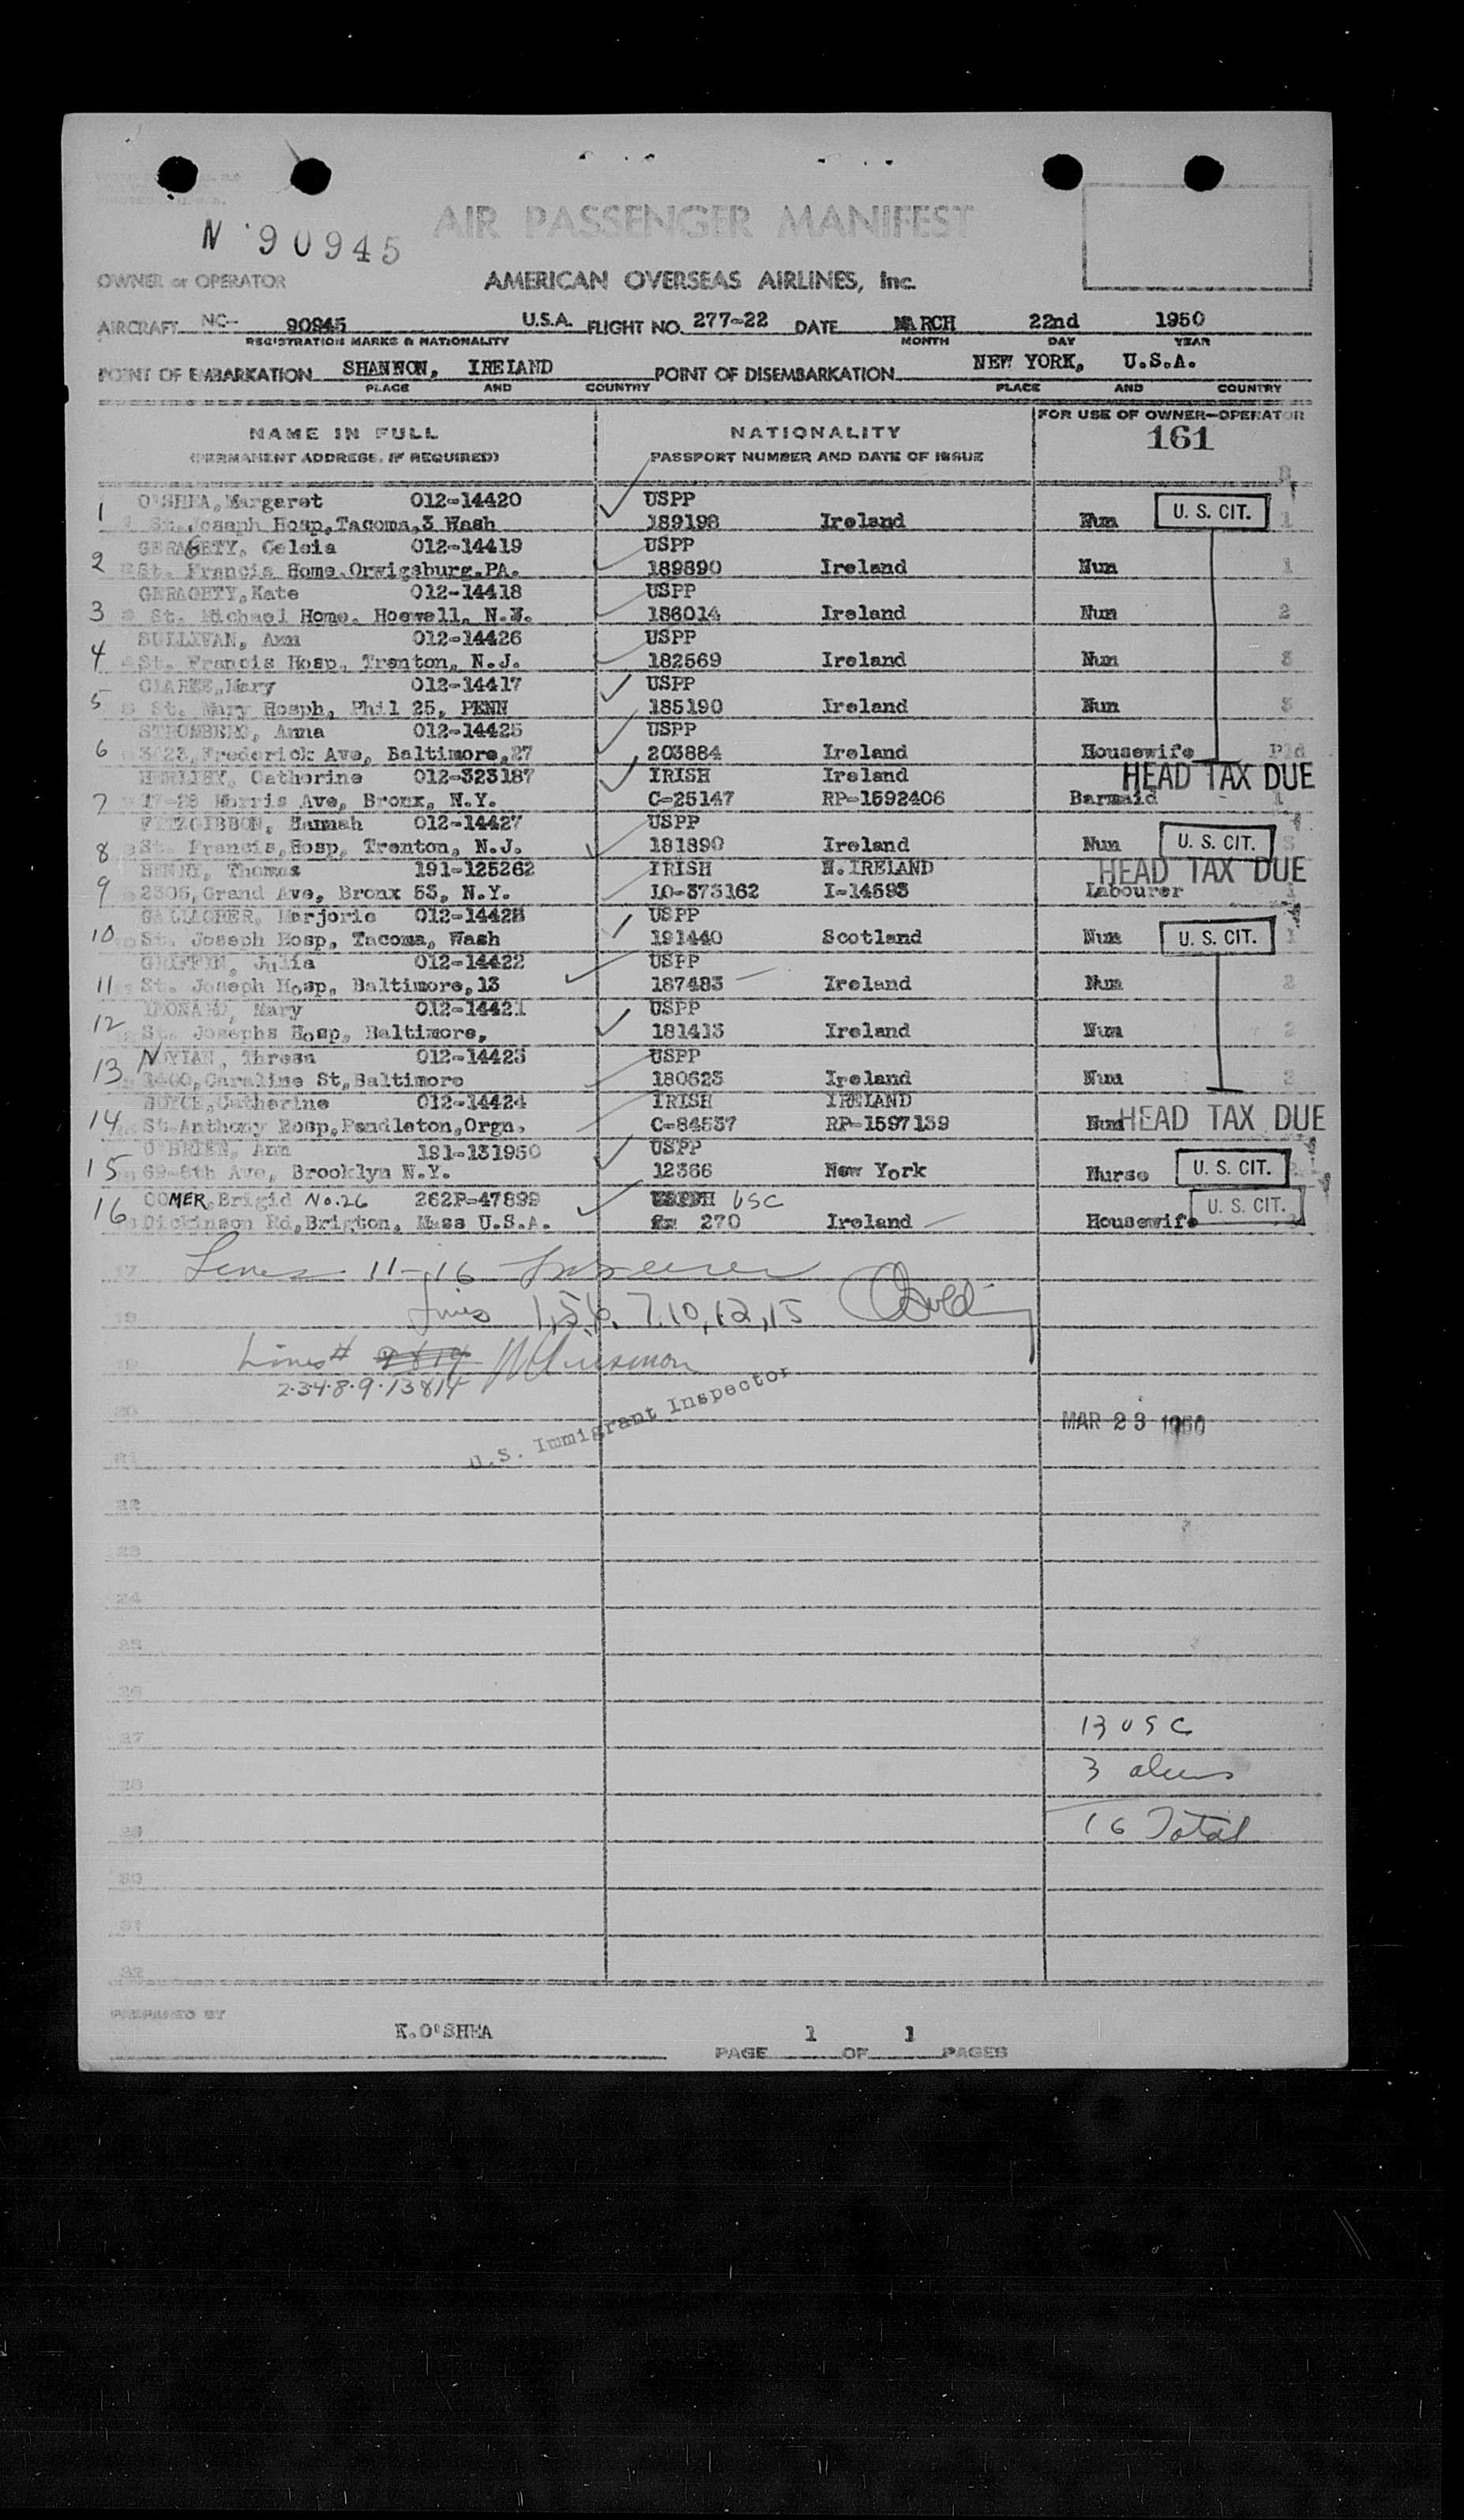 N 90945
AIR PASSENGER MANIFEST
OWNER or OPERATOR AMERICAN OVERSEAS AIRLINES, Inc.
AIRCRAFT NC- 90945 U.S.A. FLIGHT NO. 277-22 DATE MARCH 22nd 1950
REGISTRATION MARKS & NATIONALITY MONTH DAY YEAR
POINT OF EMBARKATION SHANNON, IRELAND POINT OF DISEMBARKATION NEW YORK, U.S.A.
PLACE AND COUNTRY PLACE AND COUNTRY
NAME IN FULL NATIONALITY FOR USE OF OWNER-OPERATOR
(PERMANENT ADDRESS, IF REQUIRED) PASSPORT NUMBER AND DATE OF ISSUE 161
1 O'SHEA, Margaret 012-14420 USPP U. S. CIT.
St. Joseph Hosp, Tacoma, 3 Wash 189198 Ireland Nun 1
2 GERAGETY, Celcia 012-14419 USPP
St. Francis Home. Orwigsburg. PA. 189890 Ireland Nun 1
3 GERAGETY, Kate 012-14418 USPP
St. Michael Home. Hoewell. N.J. 186014 Ireland Nun 2
4 SULLIVAN, Ann 012-14426 USPP
St. Francis Hosp, Trenton, N.J. 182569 Ireland Nun 3
5 CLARKE, Mary 012-14417 USPP
St. Mary Hosph, Phil 25, PENN 185190 Ireland Nun 3
6 STROMBERG, Anna 012-14425 USPP
3423, Frederick Ave, Baltimore, 27 203884 Ireland Housewife
7 Catherine 012-323187 IRISH Ireland HEAD TAX DUE
Morris Ave, Bronx, N.Y. C-25147 RP-1592406 Barmaid 1
8 FITZGIBBON, Hannah 012-14427 USPP U. S. CIT.
St. Francis, Hosp, Trenton, N.J. 181890 Ireland Nun 3
9 HENRY, Thomas 191-125262 IRISH N. IRELAND HEAD TAX DUE
2306, Grand Ave, Bronx 53, N.Y. LO-373162 I-14593 Labourer 1
10 GALLAGHER, Marjorie 012-14428 USPP
St. Joseph Hosp, Tacoma, Wash 191440 Scotland Nun U. S. CIT. 1
11 GRIFFIN, Julia 012-14422 USPP
St. Joseph Hosp, Baltimore, 13 187483 Ireland Nun 2
12 LEONARD, Mary 012-14421 USPP
St. Josephs Hosp, Baltimore, 181413 Ireland Nun 2
13 NOYLAN, Thresa 012-14423 USPP
1400, Caraline St, Baltimore 180623 Ireland Nun 2
14 BOYCE, Catherine 012-14424 IRISH IRELAND
St Anthony Hosp, Pendleton, Orgn. C-84537 RP-1597139 Nun HEAD TAX DUE
15 O'BRIEN, Ann 191-131950 USPP
69-8th Ave, Brooklyn N.Y. 12366 New York Nurse U. S. CIT.
16 COMER, Brigid No. 26 262P-47899 USC U. S. CIT.
Dickinson Rd, Brigton, Mass U.S.A. 270 Ireland Housewife
17 Lines 11-16
Lines 1, 5, 6, 7, 10, 12, 15
19 Lines #
2-3-4-8-9-13&14
20 U.S. Immigrant Inspector MAR 23 1950
21
22
23
24
25
26
27 13 USC
28 3 aliens
29 16 Total
30
31
32
PREPARED BY K. O'SHEA PAGE 1 OF 1 PAGES